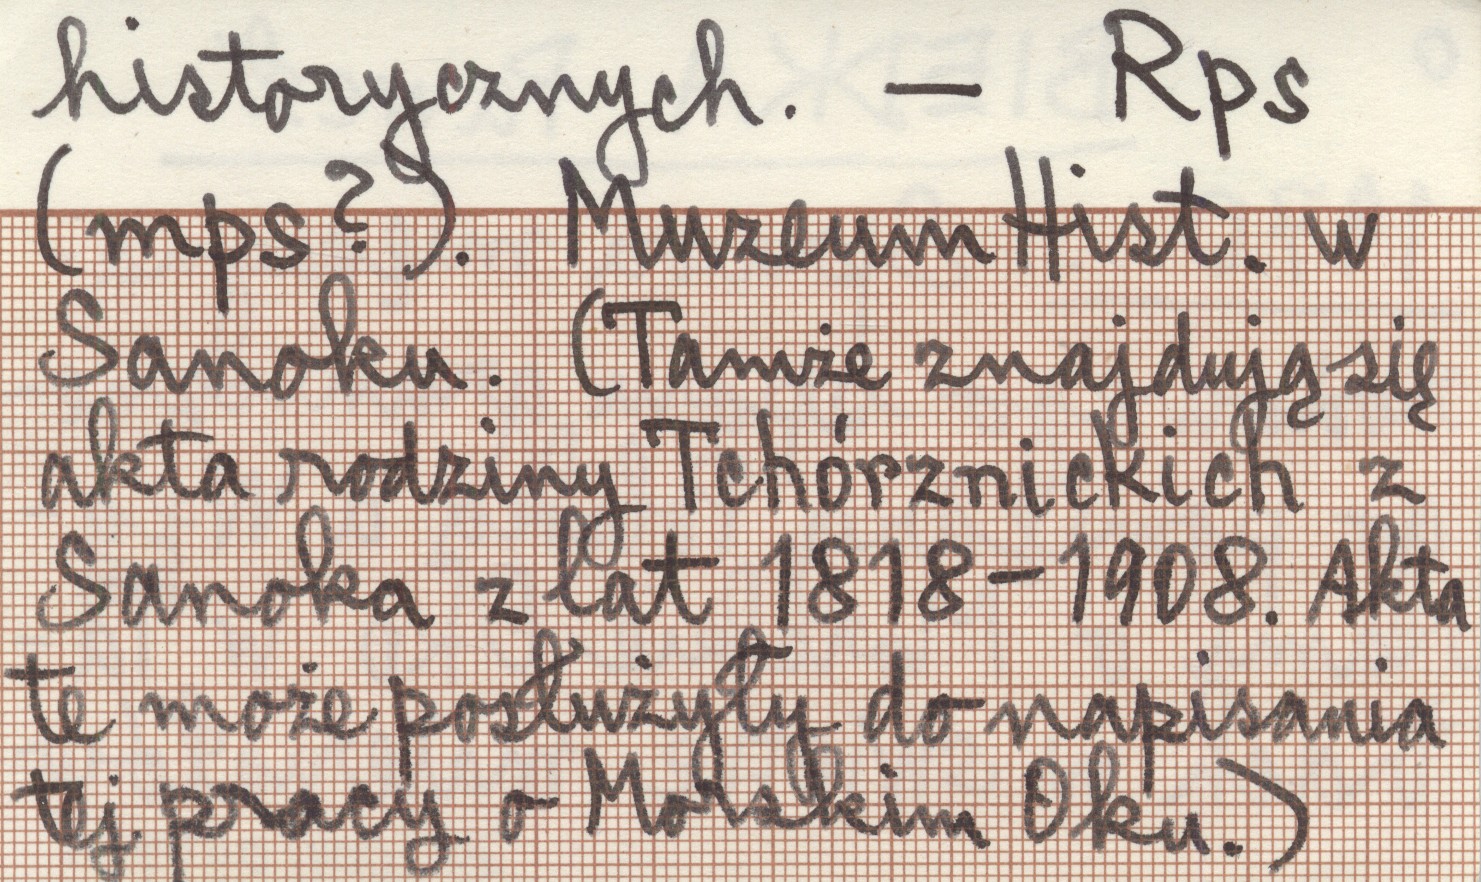 historycznych. — Rps
(mps?). Muzeum Hist. w
Sanoku. (Tamże znajdują się
akta rodziny Tchórznickich z
Sanoka z lat 1818–1908. Akta
te może posłużyły do napisania
tej pracy o Morskim Oku.)